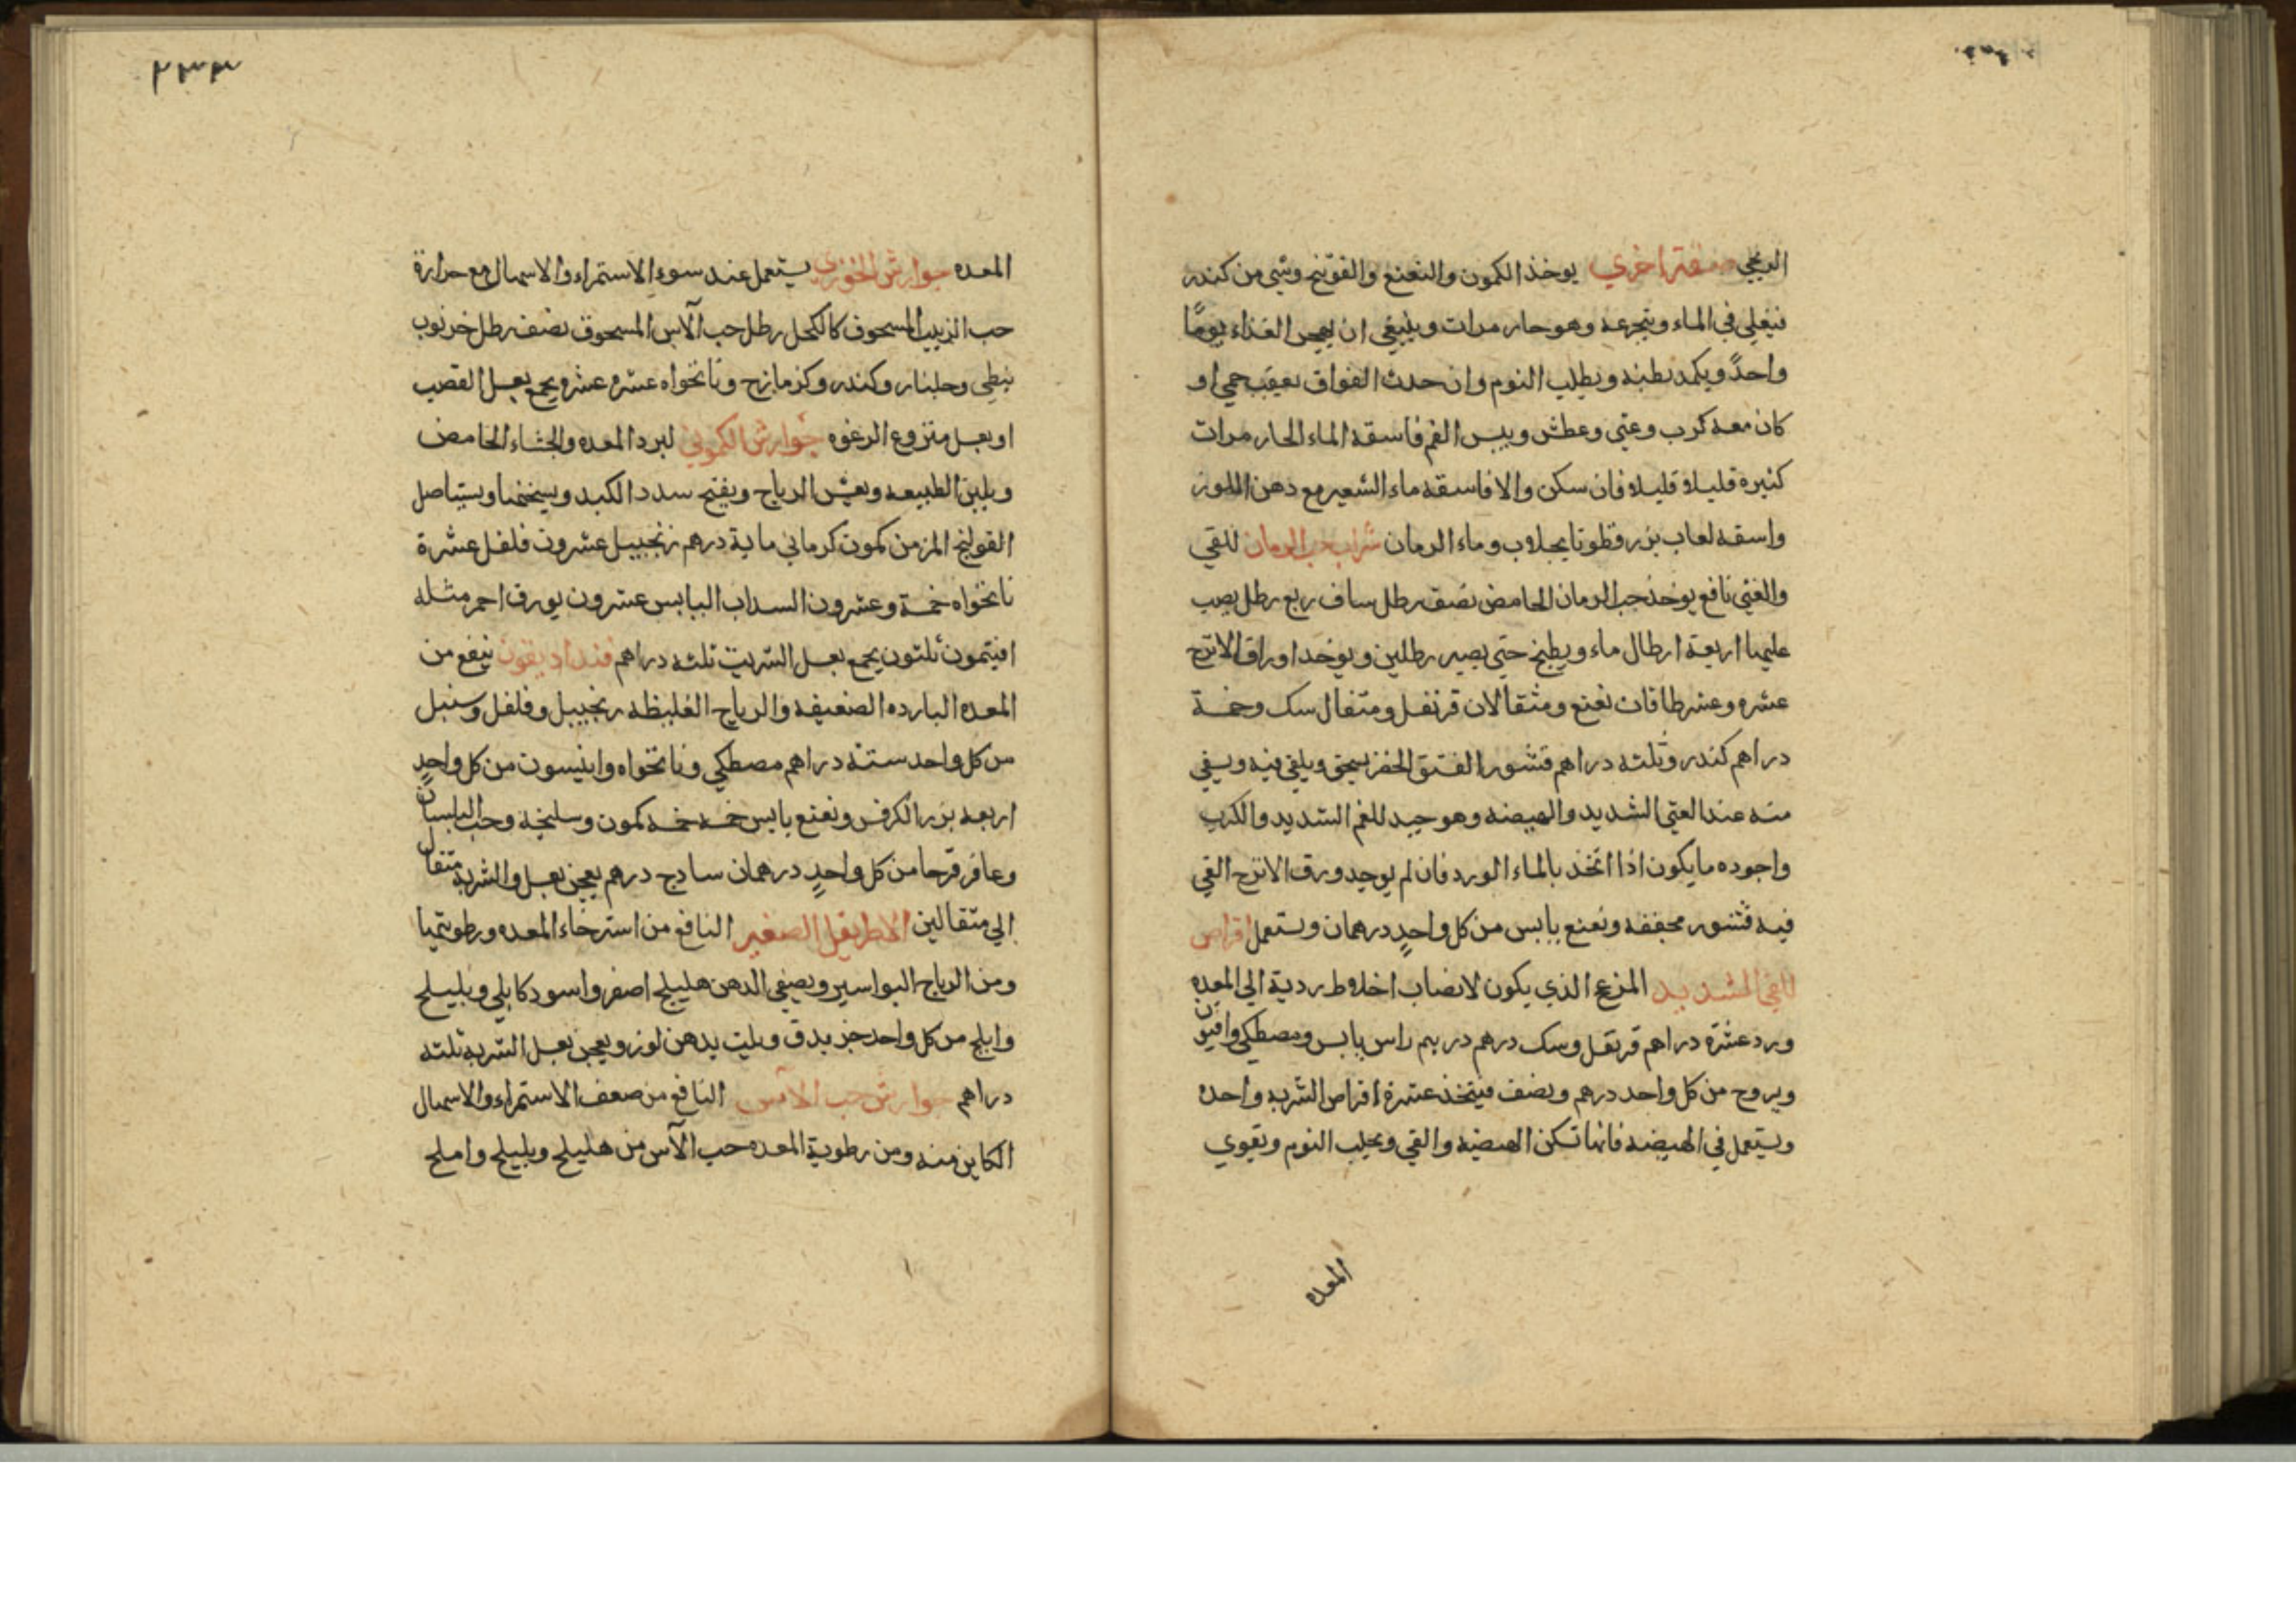 صفة اخري يوخذ الكمون والنعنع والفوتنج وشي من كندر
فيغلي في الماء ويتجرعه وهو حار مرات وينبغي ان يهجر الغذاء يومًا
واحدً ويكمد بطنه ويطلب النوم وان حدث الفواق بعقب حمي او
كان معه كرب وغثي وعطش ويبس الفم فاسقه الماء الحار مرات
كثيره قليلا قليلا فان سكن والا فاسقه ماء الشعير مع دهن اللوز
واسقه لعاب بزر قطونا بجلاب وماء الرمان شراب حب الرمان للقي
والغثي نافع يوخذ حب الرمان الحامض نصف رطل سماق ربع رطل يصب
عليها اربعة ارطال ماء ويطبخ حتي يصير رطلين ويوخد اوراق الاترج
عشره وعشر طاقات نعنع ومثقالان قرنفل ومثقال سك وخمسة
دراهم كندر وثلثه دراهم قشور الفستق يسحق ويلقي فيه ويسقي
منه عند الغثي الشديد والهيضه وهو جيد للغم الشديد والكرب
واجوده ما يكون اذا اتخذ بالماء الورد فان لم يوجد ورق الاترج القي
فيه قشور مجففه ونعنع يابس من كل واحدٍ درهمان ويستعمل اقراص
للقي الشديد المزعج الذي يكون لانصاب اخلاط ردية الي المعده
ورد عشرة دراهم قرنفل وسك درهم درهم راس يابس ومصطكي وافيون
ويروح من كل واحد درهم ونصف فيتخذ عشرة اقراص الشربه واحده
ويستعمل في الهيضه فانها تسكن الهيضه والقي ويجلب النوم ويقوي
المعده
٢٣٣
المعده جوارش الخوزي يستعمل عند سوء الاستمراء والاسهال مع حرارة
حب الزبيب المسحوق كالكحل رطل حب الآس المسحوق نصف رطل خرنوب
نبطي وجلنار وكندر وكزمازج ونانخواه عشره عشره يجمع بعسل القصب
او بعسل منزوع الرغوه جوارش الكموني لبرد المعده والجشاء الحامض
ويلين الطبيعه ويفش الرياح ويفتح سدد الكبد ويسخنها ويستاصل
القولنج المزمن كمون كرماني ماية درهم زنجبيل عشرون فلفل عشرة
نانخواه خمسة وعشرون السداب اليابس عشرون بورق احمر مثله
افيتمون ثلثون يجمع بعسل الشربت ثلثه دراهم فنداديقون ينفع من
المعده البارده الضعيفه والرياح الغليظه زنجبيل وفلفل وسنبل
من كل واحد ستة دراهم مصطكي ونانخواه وانيسون من كل واحدٍ
اربعه بزر الكرفس ونعنع يابس خمسه خمسه كمون وسليخه وحب البلسان
وعاقر قرحا من كل واحدٍ درهمان سادج درهم يعجن بعسل والشربه مثقال
الي مثقالين الاطريفل الصغير النافع من استرخاء المعده ورطوبتها
ومن الرياح البواسير ويصفي الدهن هليلج اصفر واسود كابلي وبليلج
واملج من كل واحد جز يدق ويلت بدهن لوز ويعجن بعسل الشربه ثلثه
دراهم جوارش حب الآس النافع من ضعف الاستمراء والاسهال
الكاين منه ومن رطوبة المعده حب الآس من هليلج وبليلج واملج